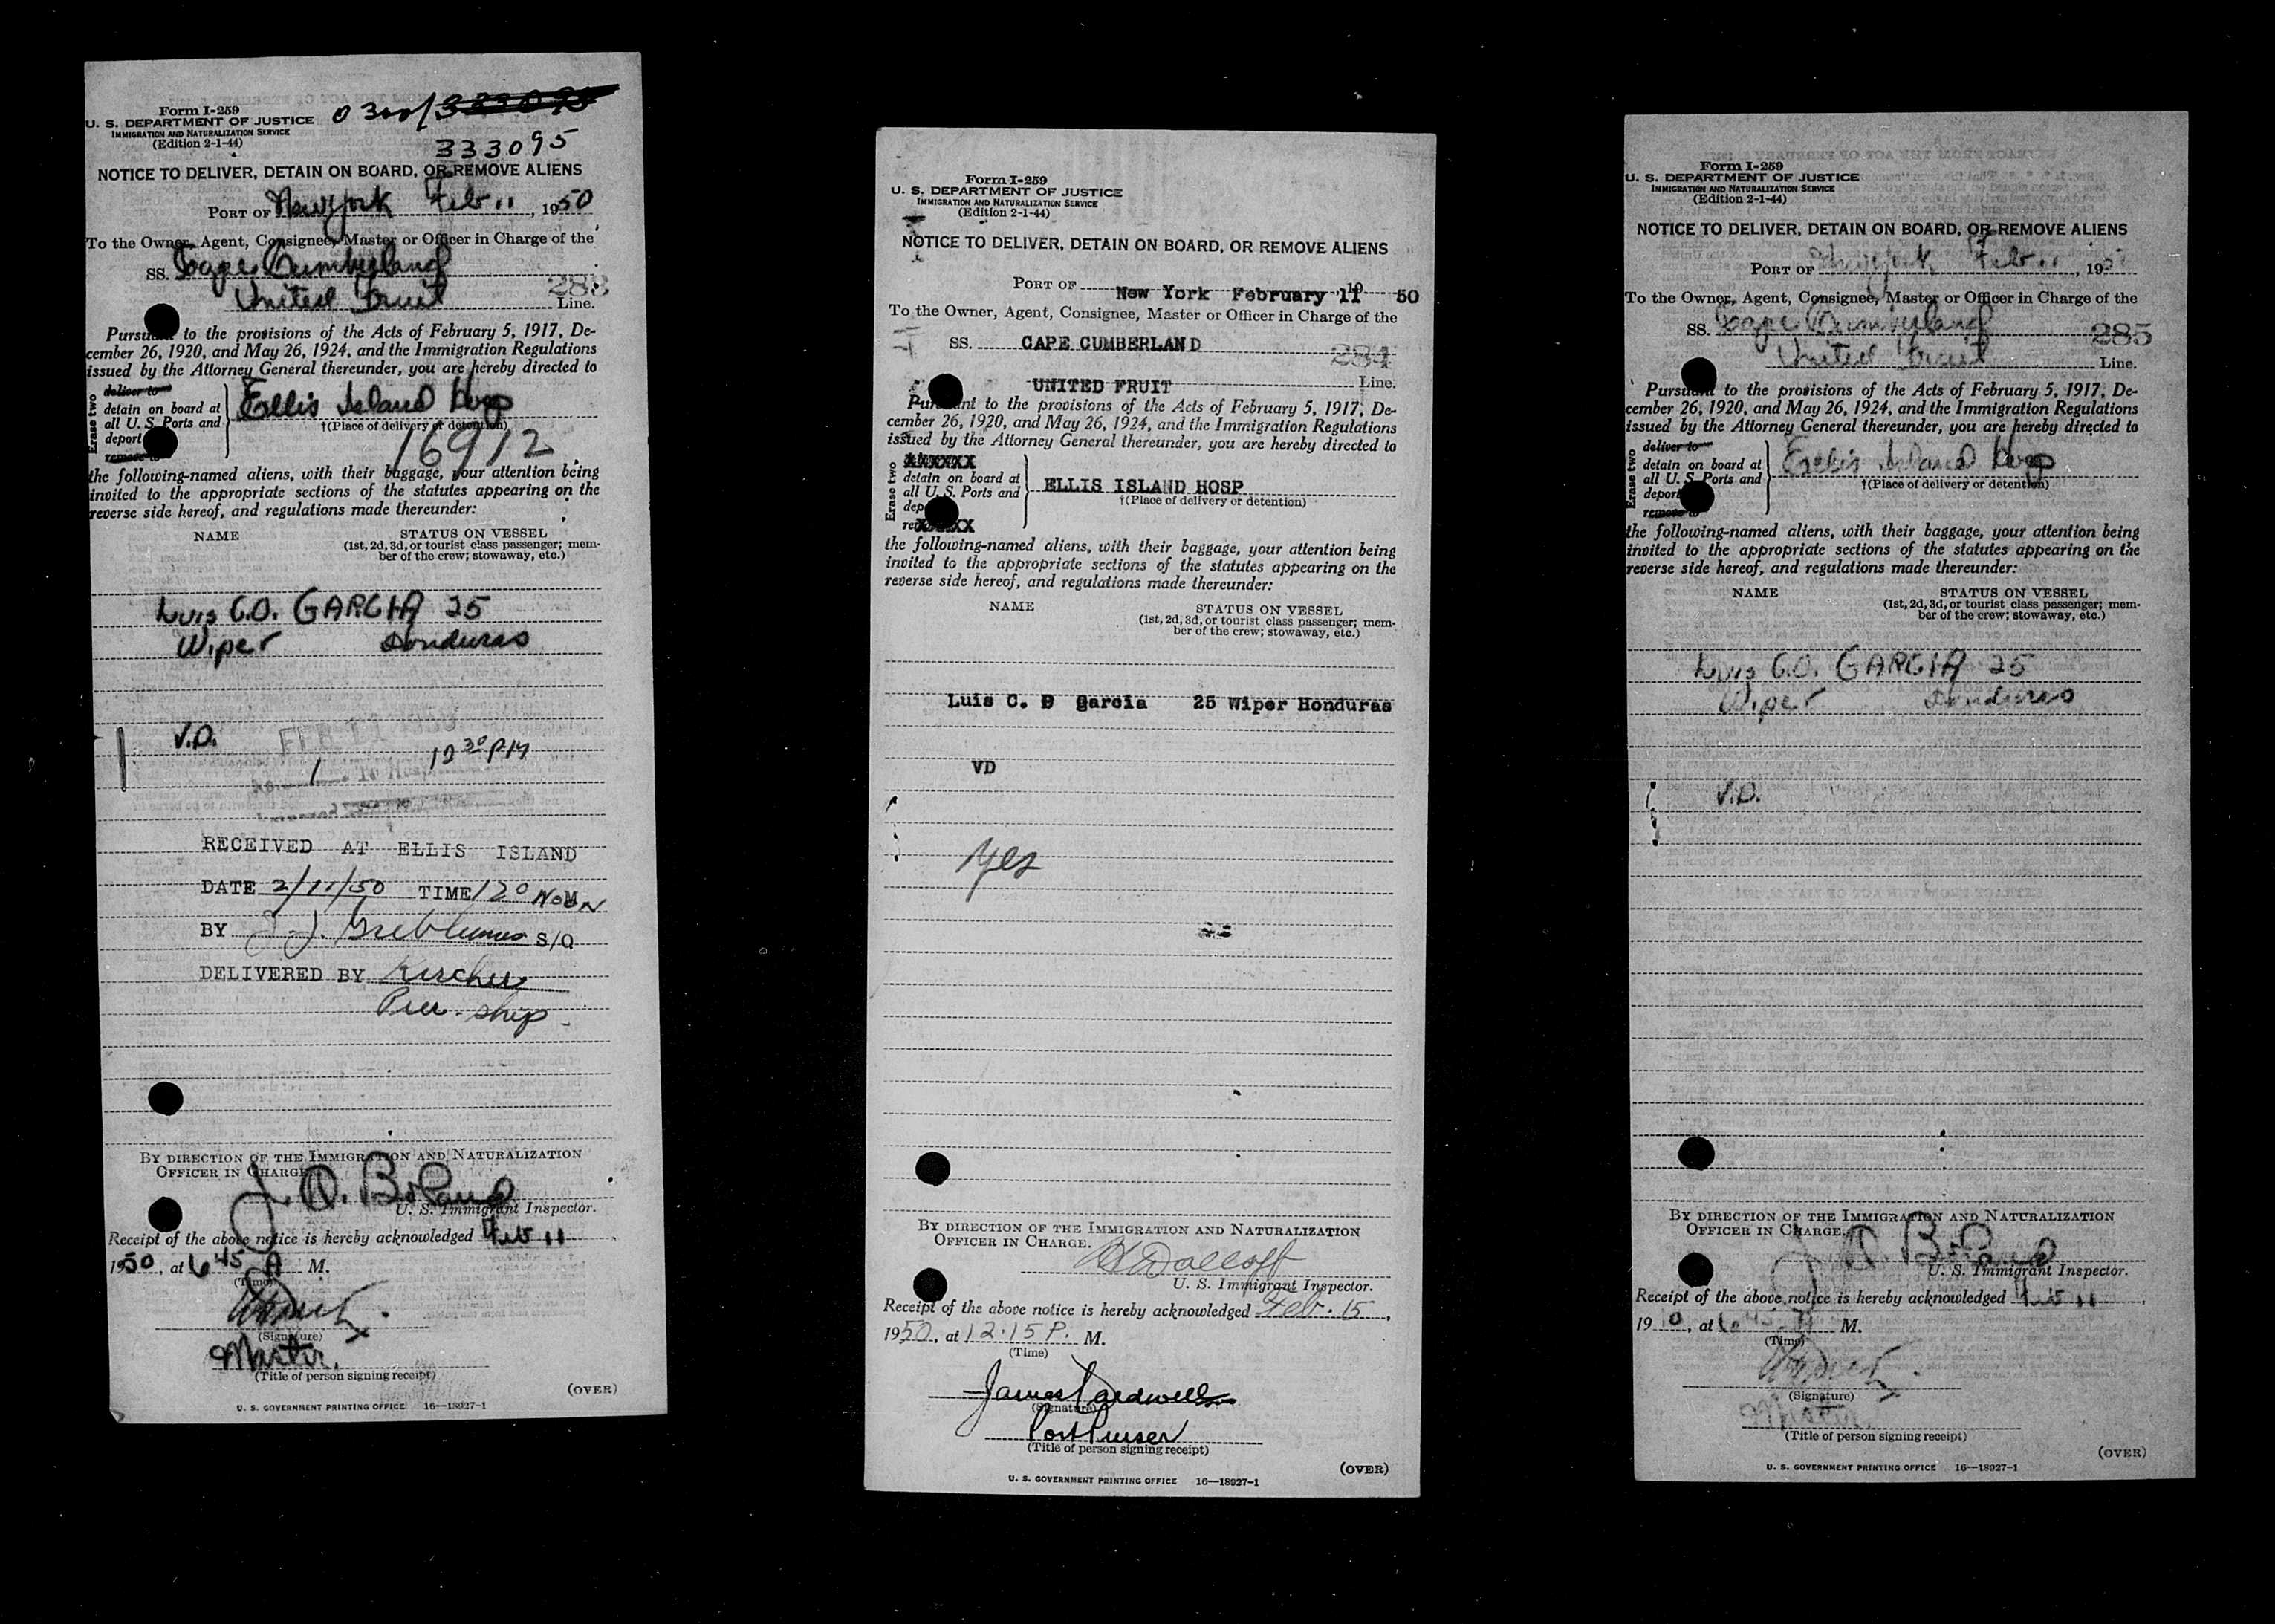 Form I-259
U. S. DEPARTMENT OF JUSTICE
IMMIGRATION AND NATURALIZATION SERVICE
(Edition 2-1-44)
333095
NOTICE TO DELIVER, DETAIN ON BOARD, OR REMOVE ALIENS
PORT OF New York Feb 11, 1950
To the Owner, Agent, Consignee, Master or Officer in Charge of the
SS. Cape Cumberland
283
United Fruit Line.
Pursuant to the provisions of the Acts of February 5, 1917, De-
cember 26, 1920, and May 26, 1924, and the Immigration Regulations
issued by the Attorney General thereunder, you are hereby directed to
Erase two
deliver to
detain on board at
all U. S. Ports and
deport
remove to
Ellis Island Hosp
†(Place of delivery or detention)
16912
the following-named aliens, with their baggage, your attention being
invited to the appropriate sections of the statutes appearing on the
reverse side hereof, and regulations made thereunder:
NAME STATUS ON VESSEL
(1st, 2d, 3d, or tourist class passenger; mem-
ber of the crew; stowaway, etc.)
Luis C.O. GARCIA 25
Wiper Honduras
V.D. FEB 11 1950
1 12 30 PM
RECEIVED AT ELLIS ISLAND
DATE 2/11/50 TIME 12 0 NOON
BY S/O
DELIVERED BY Kircher
ship
BY DIRECTION OF THE IMMIGRATION AND NATURALIZATION
OFFICER IN CHARGE.
J. A. Boland
U. S. Immigrant Inspector.
Receipt of the above notice is hereby acknowledged Feb 11
1950, at 6 45 A M.
(Time)
(Signature)
Master.
(Title of person signing receipt)
(OVER)
U. S. GOVERNMENT PRINTING OFFICE 16—18927-1
Form I-259
U. S. DEPARTMENT OF JUSTICE
IMMIGRATION AND NATURALIZATION SERVICE
(Edition 2-1-44)
NOTICE TO DELIVER, DETAIN ON BOARD, OR REMOVE ALIENS
PORT OF New York February 11 19 50
To the Owner, Agent, Consignee, Master or Officer in Charge of the
SS. CAPE CUMBERLAND
284
UNITED FRUIT Line.
Pursuant to the provisions of the Acts of February 5, 1917, De-
cember 26, 1920, and May 26, 1924, and the Immigration Regulations
issued by the Attorney General thereunder, you are hereby directed to
Erase two
XXXXXX
detain on board at
all U. S. Ports and
dep
reXXXXX
ELLIS ISLAND HOSP
†(Place of delivery or detention)
the following-named aliens, with their baggage, your attention being
invited to the appropriate sections of the statutes appearing on the
reverse side hereof, and regulations made thereunder:
NAME STATUS ON VESSEL
(1st, 2d, 3d, or tourist class passenger; mem-
ber of the crew; stowaway, etc.)
Luis C. O Garcia 25 Wiper Honduras
VD
Yes
BY DIRECTION OF THE IMMIGRATION AND NATURALIZATION
OFFICER IN CHARGE.
U. S. Immigrant Inspector.
Receipt of the above notice is hereby acknowledged Feb. 15,
1950, at 12:15 P. M.
(Time)
James Cardwell
(Signature)
Port Purser
(Title of person signing receipt)
(OVER)
U. S. GOVERNMENT PRINTING OFFICE 16—18927-1
Form I-259
U. S. DEPARTMENT OF JUSTICE
IMMIGRATION AND NATURALIZATION SERVICE
(Edition 2-1-44)
NOTICE TO DELIVER, DETAIN ON BOARD, OR REMOVE ALIENS
PORT OF New York Feb 11, 195
To the Owner, Agent, Consignee, Master or Officer in Charge of the
SS. Cape Cumberland
285
United Fruit Line.
Pursuant to the provisions of the Acts of February 5, 1917, De-
cember 26, 1920, and May 26, 1924, and the Immigration Regulations
issued by the Attorney General thereunder, you are hereby directed to
Erase two
deliver to
detain on board at
all U. S. Ports and
deport
remove to
Ellis Island Hosp
†(Place of delivery or detention)
the following-named aliens, with their baggage, your attention being
invited to the appropriate sections of the statutes appearing on the
reverse side hereof, and regulations made thereunder:
NAME STATUS ON VESSEL
(1st, 2d, 3d, or tourist class passenger; mem-
ber of the crew; stowaway, etc.)
Luis C.O. GARCIA 25
Wiper Honduras
V.D.
BY DIRECTION OF THE IMMIGRATION AND NATURALIZATION
OFFICER IN CHARGE.
J. A. Boland
U. S. Immigrant Inspector.
Receipt of the above notice is hereby acknowledged Feb 11,
19 0, at 6 45 A M.
(Time)
(Signature)
Master
(Title of person signing receipt)
(OVER)
U. S. GOVERNMENT PRINTING OFFICE 16—18927-1